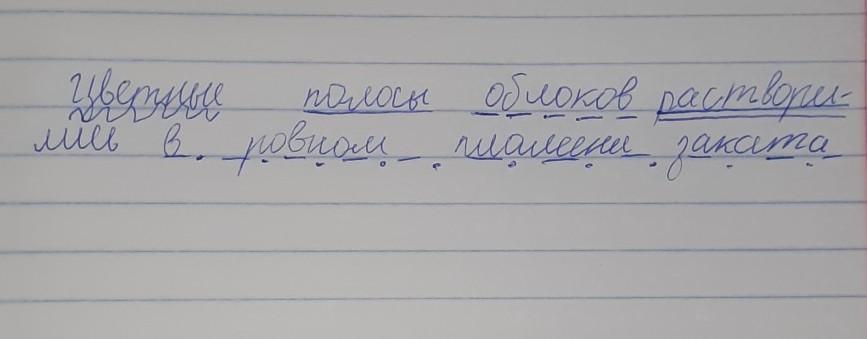 Цветные полосы облоков раствори-
лись в ровном пламени заката